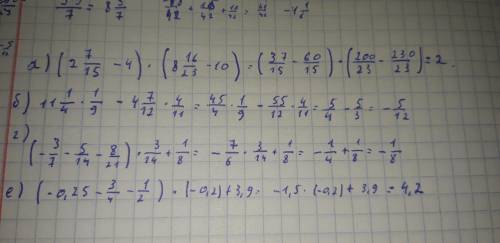 = 8 5/7
а) (2 7/15 - 4) · (8 16/23 - 10) = (37/15 - 60/15) · (200/23 - 230/23) = 2.
б) 11 1/4 · 1/9 - 4 7/12 · 4/11 = 45/4 · 1/9 - 55/12 · 4/11 = 5/4 - 5/3 = - 5/12
г) (- 3/7 - 5/14 - 8/21) · 3/14 + 1/8 = - 7/6 · 3/14 + 1/8 = - 1/4 + 1/8 = - 1/8
е) (-0,25 - 3/4 - 1/2) · (-0,2) + 3,9 = -1,5 · (-0,2) + 3,9 = 4,2